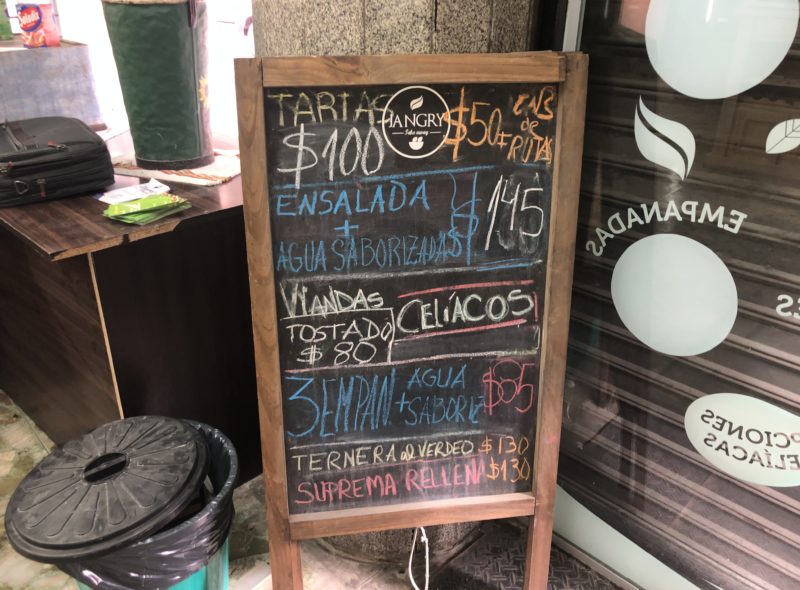 TARTAS
$100
HANGRY
Take away
$50
ENS
de
FRUTAS
ENSALADA
+
AGUA SABORIZADA
$145
VIANDAS
CELÍACOS
TOSTADO
$80
3 EMPAN + AGUA SABORIZ
TERNERA al VERDEO $130
SUPREMA RELLENA $130
EMPANADAS
OPCIONES
CELÍACAS